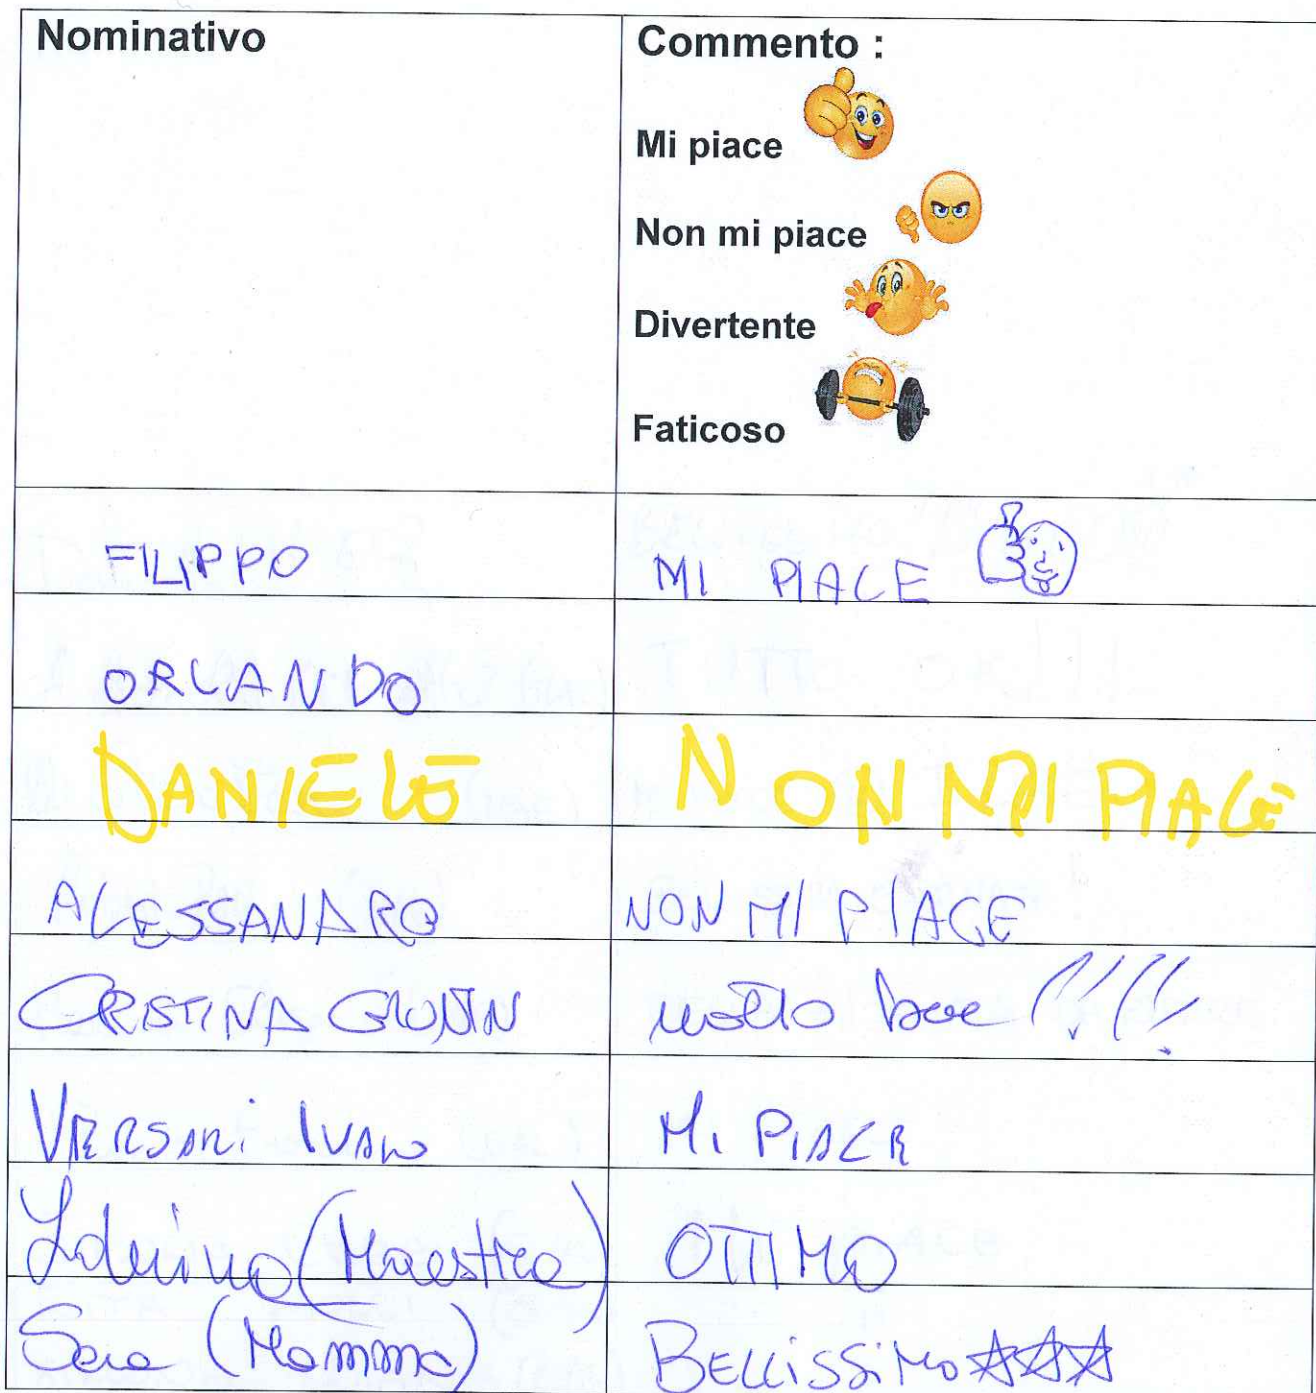 Nominativo
Commento :
Mi piace
Non mi piace
Divertente
Faticoso
FILIPPO MI PIACE
ORLANDO
DANIELE NON MI PIACE
ALESSANDRO NON MI PIACE
CRISTINA molto bene !!!!
VERSARI IVAN MI PIACE
(Maestra) OTTIMO
Sara (Mamma) BELLISSIMO